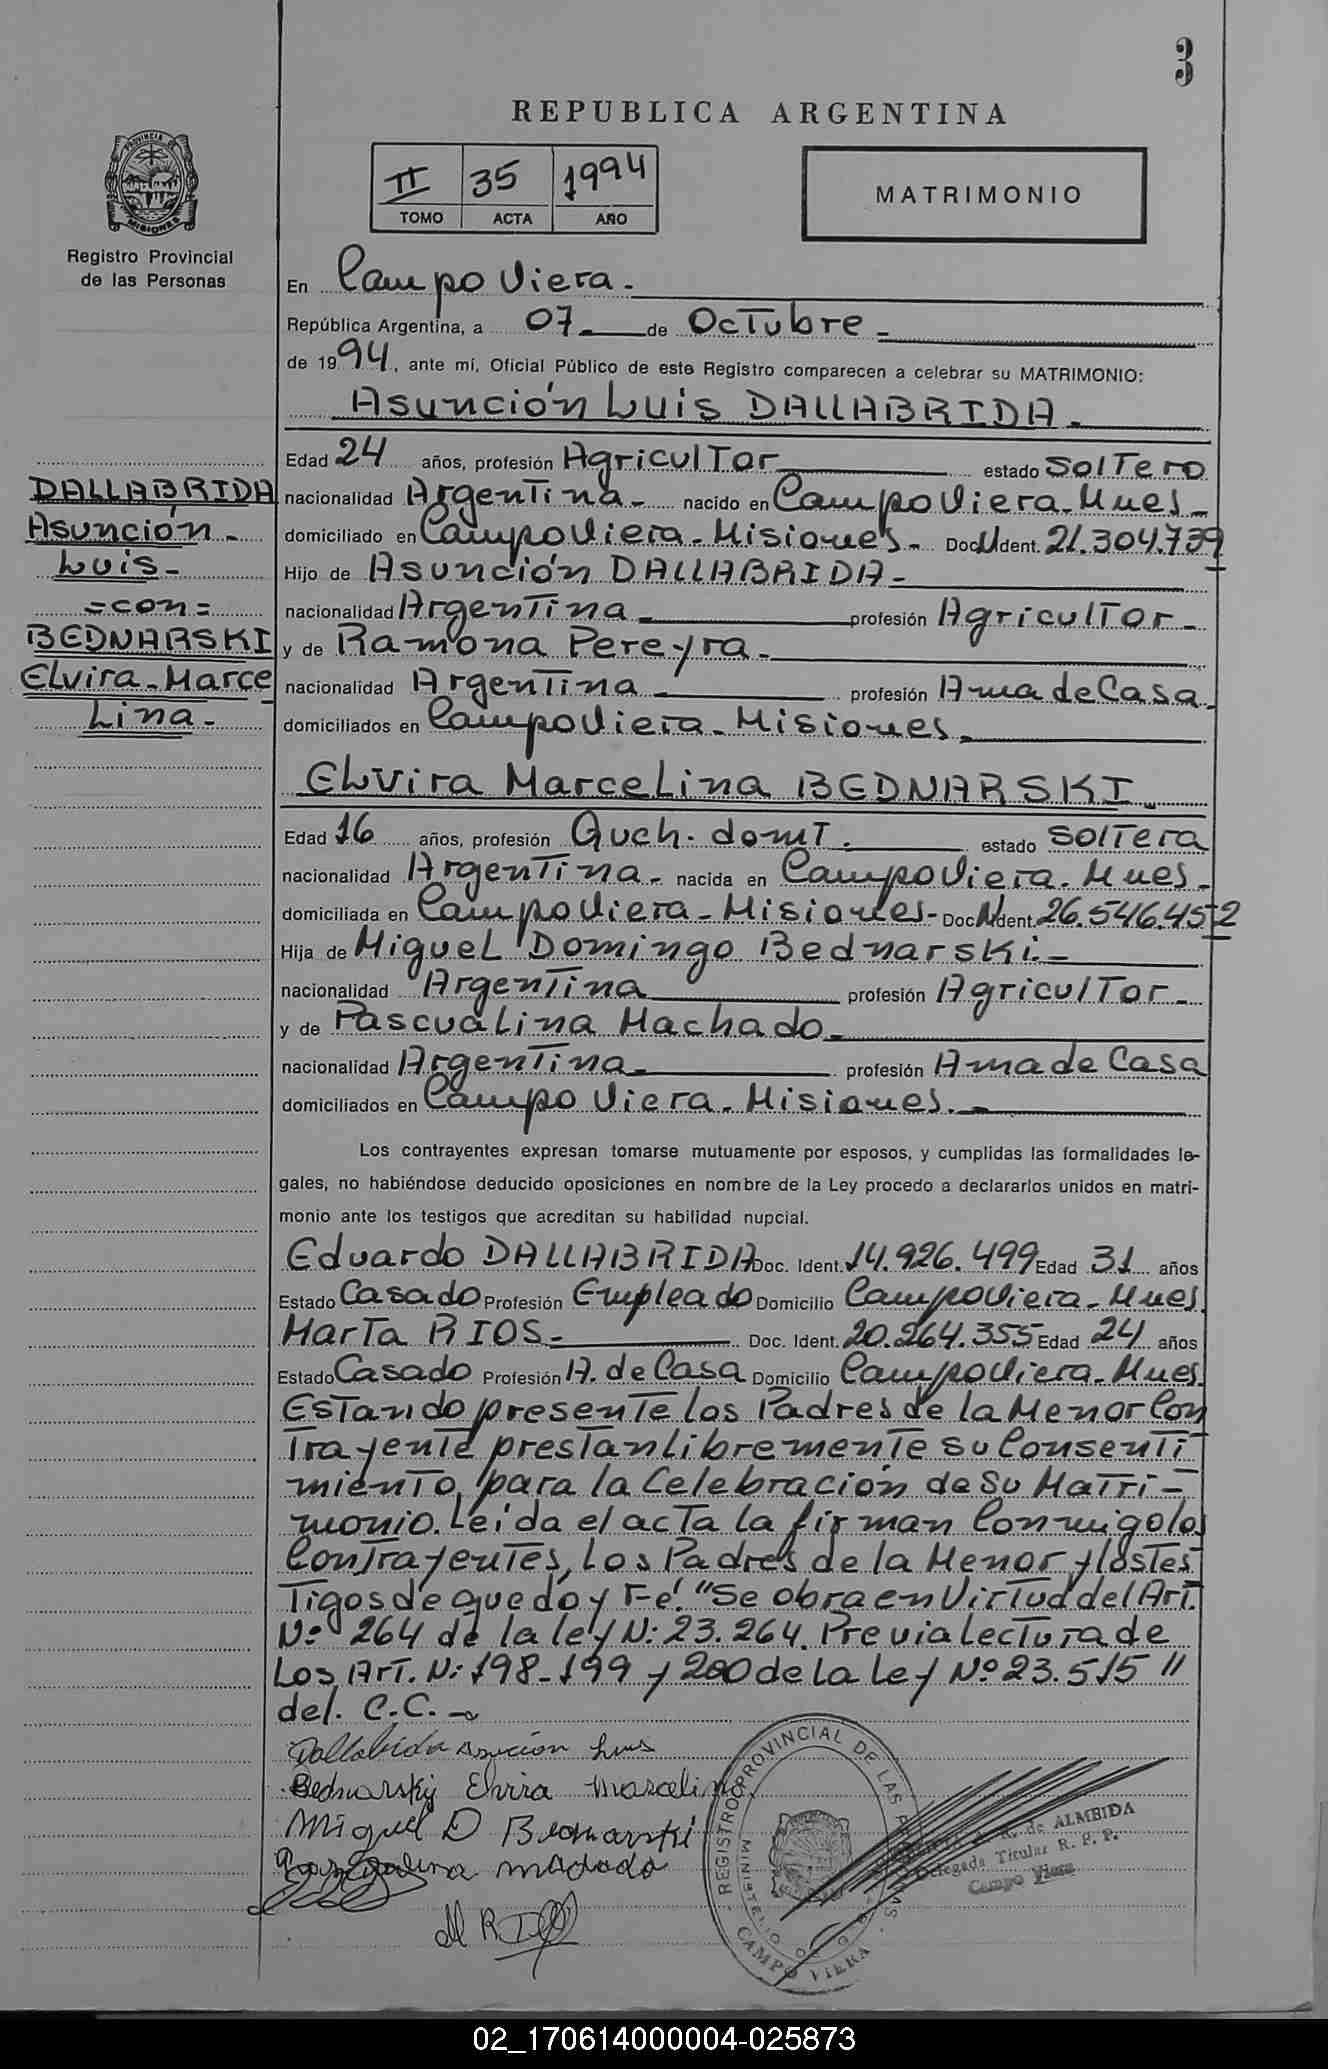 3
REPUBLICA ARGENTINA
PROVINCIA DE
MISIONES
Registro Provincial
de las Personas
II 35 1994
TOMO ACTA AÑO
MATRIMONIO
En Campo Viera.
República Argentina, a 07 de Octubre
de 1994, ante mí, Oficial Público de este Registro comparecen a celebrar su MATRIMONIO:
Asunción Luis DALLABRIDA
Edad 24 años, profesión Agricultor estado Soltero
nacionalidad Argentina nacido en Campo Viera-Mnes
domiciliado en Campo Viera-Misiones Doc.N.Ident. 21.304.739
Hijo de Asunción DALLABRIDA
nacionalidad Argentina profesión Agricultor
y de Ramona Pereyra
nacionalidad Argentina profesión Ama de Casa
domiciliados en Campo Viera-Misiones
DALLABRIDA
Asunción
Luis
=con=
BEDNARSKI
Elvira-Marce
Lina
Elvira Marcelina BEDNARSKI
Edad 16 años, profesión Queh. domt. estado Soltera
nacionalidad Argentina nacida en Campo Viera-Mnes
domiciliada en Campo Viera-Misiones Doc.N.Ident. 26.546.452
Hija de Miguel Domingo Bednarski
nacionalidad Argentina profesión Agricultor
y de Pascualina Machado
nacionalidad Argentina profesión Ama de Casa
domiciliados en Campo Viera-Misiones
Los contrayentes expresan tomarse mutuamente por esposos, y cumplidas las formalidades le-
gales, no habiéndose deducido oposiciones en nombre de la Ley procedo a declararlos unidos en matri-
monio ante los testigos que acreditan su habilidad nupcial.
Eduardo DALLABRIDA Doc. Ident. 14.926.499 Edad 31 años
Estado Casado Profesión Empleado Domicilio Campo Viera-Mnes
Marta RIOS Doc. Ident. 20.264.355 Edad 24 años
Estado Casado Profesión A. de Casa Domicilio Campo Viera-Mnes
Estando presente los Padres de la Menor Con
trayente prestan libremente su Consenti
miento, para la Celebración de Su Matri-
monio. Leída el acta la firman Conmigo los
Contrayentes, Los Padres de la Menor y los Tes
Tigos de que doy Fé. "Se obra en Virtud del Art.
N° 264 de la ley N: 23.264. Previa lectura de
Los Art. N: 198-199 y 200 de la Ley N° 23.515"
del. C.C.
Dallabida Asucion Luis
Bednarskij Elvira Marcelina
Miguel D Bednarski
machado
M RIOS
REGISTRO PROVINCIAL DE LAS PERSONAS
MINISTERIO DE GO
CAMPO VIERA
de ALMEIDA
Delegada Titular R. P. P.
Campo Viera
02_170614000004-025873